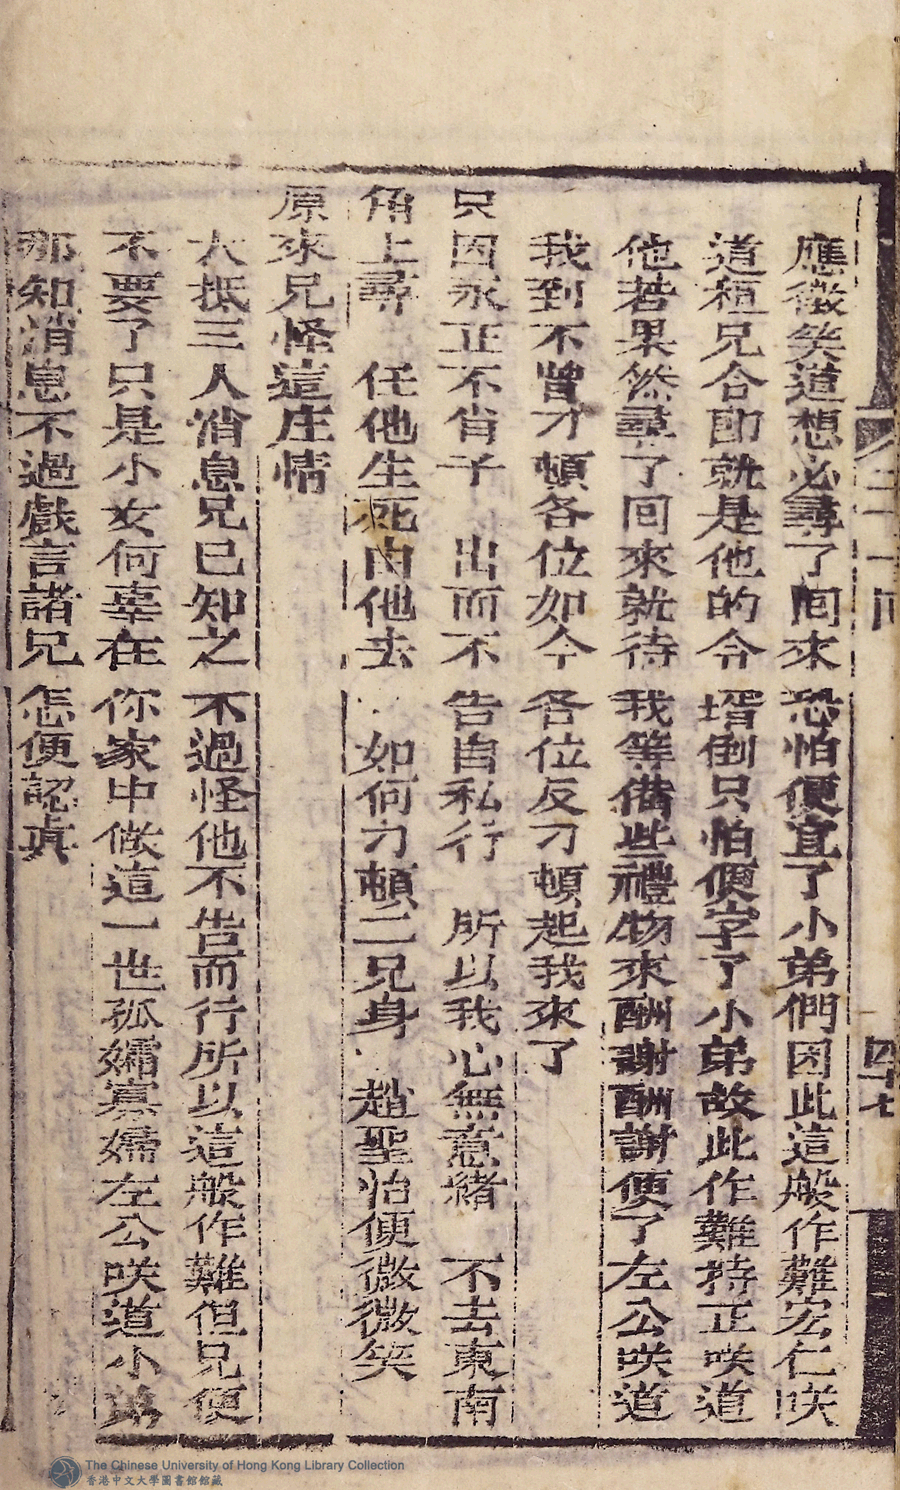 應徵笑道想必尋了囘來恐怕便宜了小弟們因此這般作難宏仁咲
道桓兄合卽就是他的令壻倒只怕便宜了小弟故此作難持正咲道
他若果然尋了囘來就待我等備些禮物來酬謝酬謝便了左公咲道
我到不曾刁頓各位如今各位反刁頓起我來了
只因永正不肖子 出而不告自私行 所以我心無意緖 不去東南
角上尋 任他生死由他去 如何刁頓二兄身 趙聖怡便微微笑
原來兄怪這庄情
大抵三人消息兄已知之不過怪他不告而行所以這般作難但兄便
不要了只是小女何辜在你家中做這一世孤孀寡婦左公咲道小弟
那知消息不過戲言諸兄怎便認眞
囘
四十七
The Chinese University of Hong Kong Library Collection
香港中文大學圖書館館藏